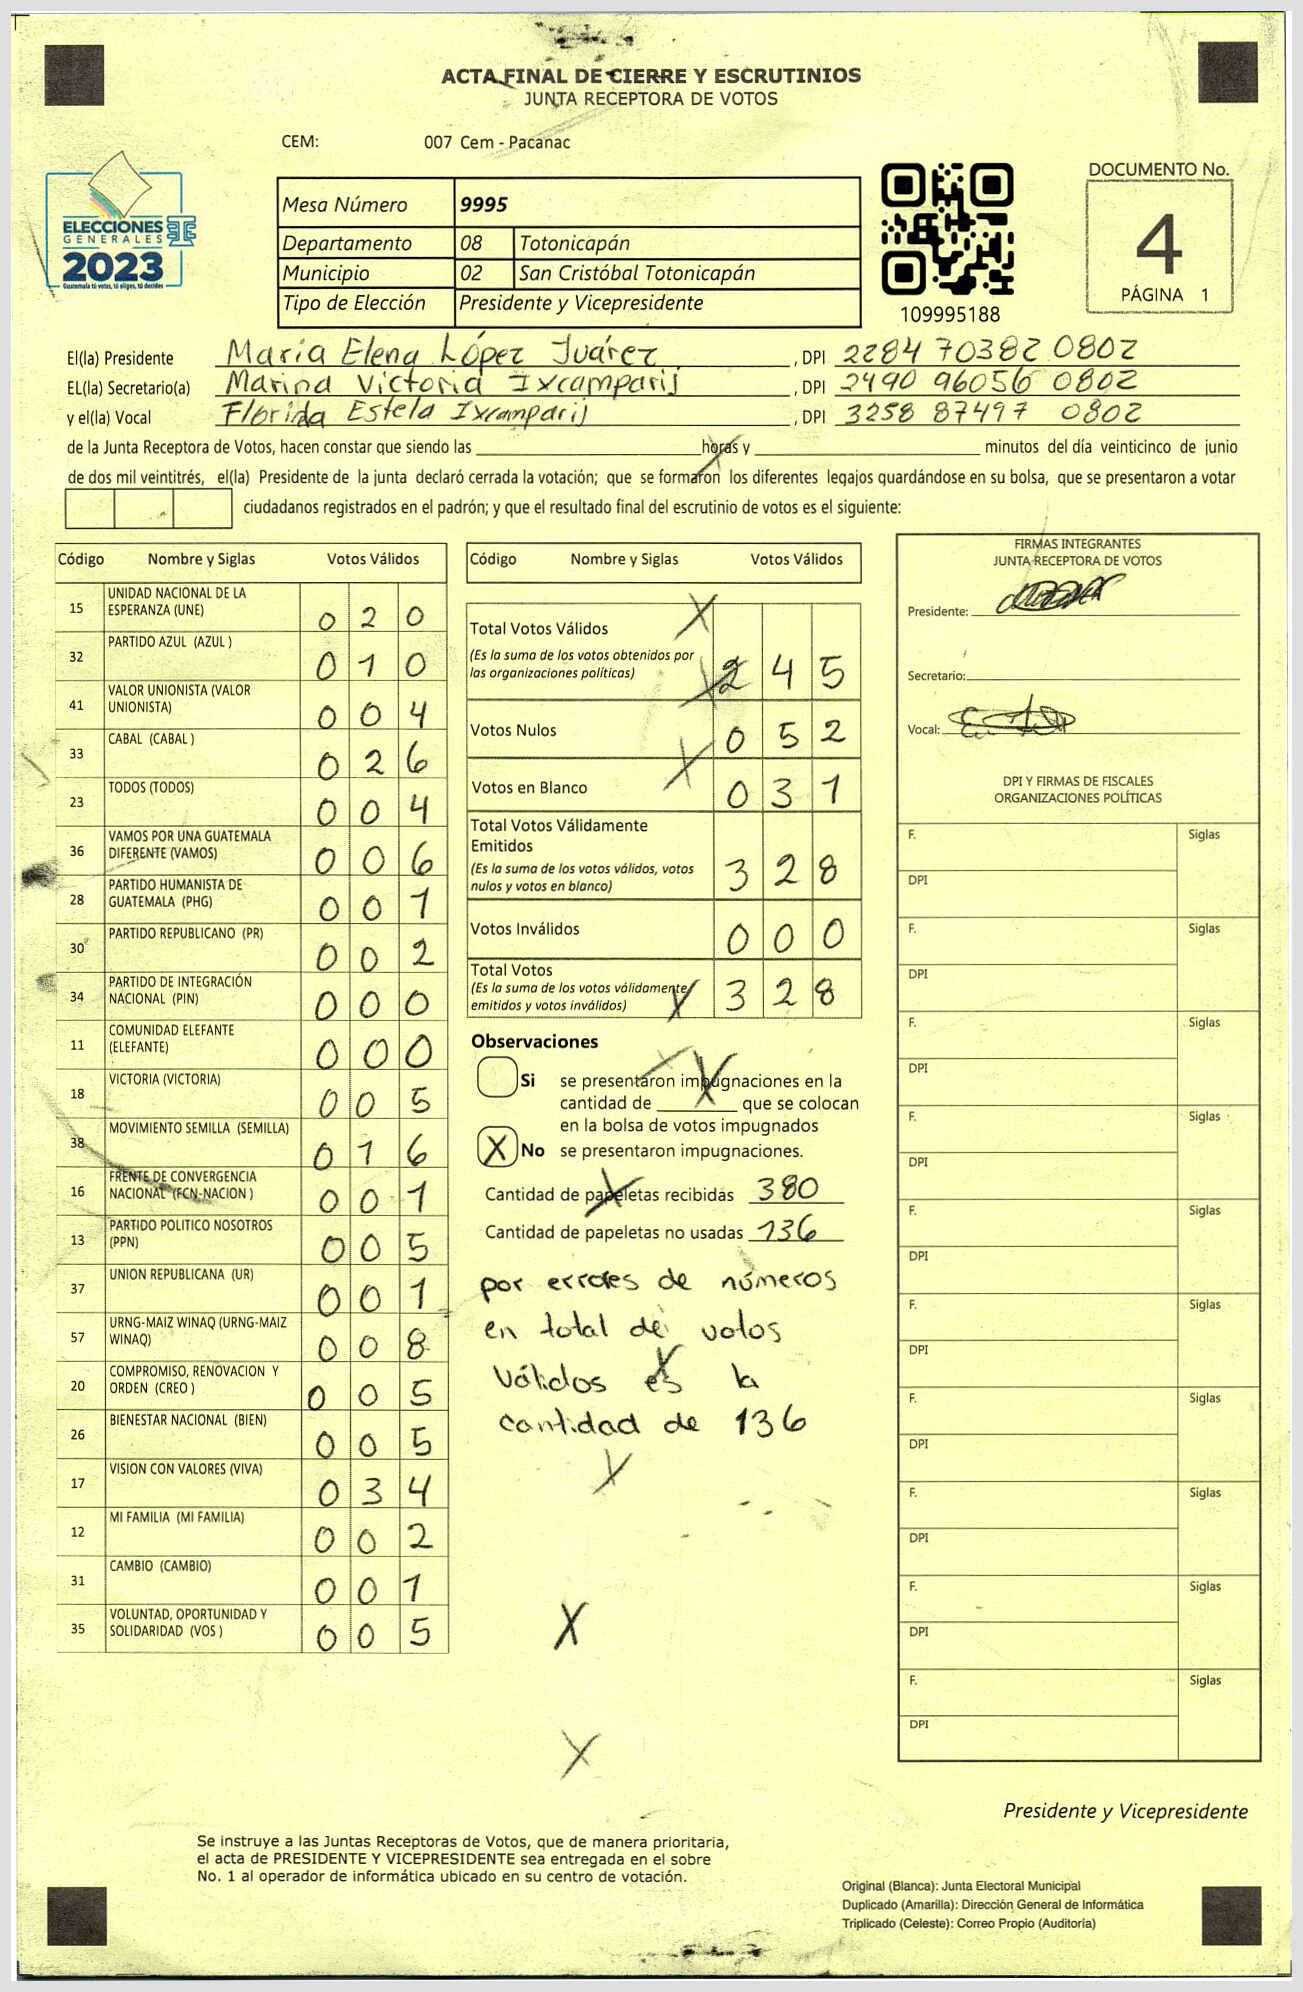 ACTA FINAL DE CIERRE Y ESCRUTINIOS
JUNTA RECEPTORA DE VOTOS
CEM: 007 Cem - Pacanac
ELECCIONES
GENERALES
2023
Guatemala tú votas, tú eliges, tú decides
Mesa Número 9995
Departamento 08 Totonicapán
Municipio 02 San Cristóbal Totonicapán
Tipo de Elección Presidente y Vicepresidente
109995188
DOCUMENTO No.
4
PÁGINA 1
El(la) Presidente María Elena López Juárez , DPI 2284 70382 0802
EL(la) Secretario(a) Marina Victoria Ixcamparij , DPI 2490 96056 0802
y el(la) Vocal Florida Estela Ixcamparij , DPI 3258 87497 0802
de la Junta Receptora de Votos, hacen constar que siendo las horas y minutos del día veinticinco de junio
de dos mil veintitrés, el(la) Presidente de la junta declaró cerrada la votación; que se formaron los diferentes legajos guardándose en su bolsa, que se presentaron a votar
ciudadanos registrados en el padrón; y que el resultado final del escrutinio de votos es el siguiente:
Código Nombre y Siglas Votos Válidos
15 UNIDAD NACIONAL DE LA
ESPERANZA (UNE) 0 2 0
32 PARTIDO AZUL (AZUL ) 0 1 0
41 VALOR UNIONISTA (VALOR
UNIONISTA) 0 0 4
33 CABAL (CABAL ) 0 2 6
23 TODOS (TODOS) 0 0 4
36 VAMOS POR UNA GUATEMALA
DIFERENTE (VAMOS) 0 0 6
28 PARTIDO HUMANISTA DE
GUATEMALA (PHG) 0 0 1
30 PARTIDO REPUBLICANO (PR) 0 0 2
34 PARTIDO DE INTEGRACIÓN
NACIONAL (PIN) 0 0 0
11 COMUNIDAD ELEFANTE
(ELEFANTE) 0 0 0
18 VICTORIA (VICTORIA) 0 0 5
38 MOVIMIENTO SEMILLA (SEMILLA) 0 1 6
16 FRENTE DE CONVERGENCIA
NACIONAL (FCN-NACION ) 0 0 1
13 PARTIDO POLITICO NOSOTROS
(PPN) 0 0 5
37 UNION REPUBLICANA (UR) 0 0 1
57 URNG-MAIZ WINAQ (URNG-MAIZ
WINAQ) 0 0 8
20 COMPROMISO, RENOVACION Y
ORDEN (CREO ) 0 0 5
26 BIENESTAR NACIONAL (BIEN) 0 0 5
17 VISION CON VALORES (VIVA) 0 3 4
12 MI FAMILIA (MI FAMILIA) 0 0 2
31 CAMBIO (CAMBIO) 0 0 1
35 VOLUNTAD, OPORTUNIDAD Y
SOLIDARIDAD (VOS ) 0 0 5
Código Nombre y Siglas Votos Válidos
Total Votos Válidos
(Es la suma de los votos obtenidos por
las organizaciones políticas) 2 4 5
Votos Nulos 0 5 2
Votos en Blanco 0 3 1
Total Votos Válidamente
Emitidos
(Es la suma de los votos válidos, votos
nulos y votos en blanco) 3 2 8
Votos Inválidos 0 0 0
Total Votos
(Es la suma de los votos válidamente
emitidos y votos inválidos) 3 2 8
Observaciones
Si se presentaron impugnaciones en la
cantidad de que se colocan
en la bolsa de votos impugnados
X No se presentaron impugnaciones.
Cantidad de papeletas recibidas 380
Cantidad de papeletas no usadas 136
por errores de números
en total de votos
Válidos es la
cantidad de 136
FIRMAS INTEGRANTES
JUNTA RECEPTORA DE VOTOS
Presidente:
Secretario:
Vocal:
DPI Y FIRMAS DE FISCALES
ORGANIZACIONES POLÍTICAS
F. Siglas
DPI
F. Siglas
DPI
F. Siglas
DPI
F. Siglas
DPI
F. Siglas
DPI
F. Siglas
DPI
F. Siglas
DPI
F. Siglas
DPI
F. Siglas
DPI
F. Siglas
DPI
Presidente y Vicepresidente
Se instruye a las Juntas Receptoras de Votos, que de manera prioritaria,
el acta de PRESIDENTE Y VICEPRESIDENTE sea entregada en el sobre
No. 1 al operador de informática ubicado en su centro de votación.
Original (Blanca): Junta Electoral Municipal
Duplicado (Amarilla): Dirección General de Informática
Triplicado (Celeste): Correo Propio (Auditoría)